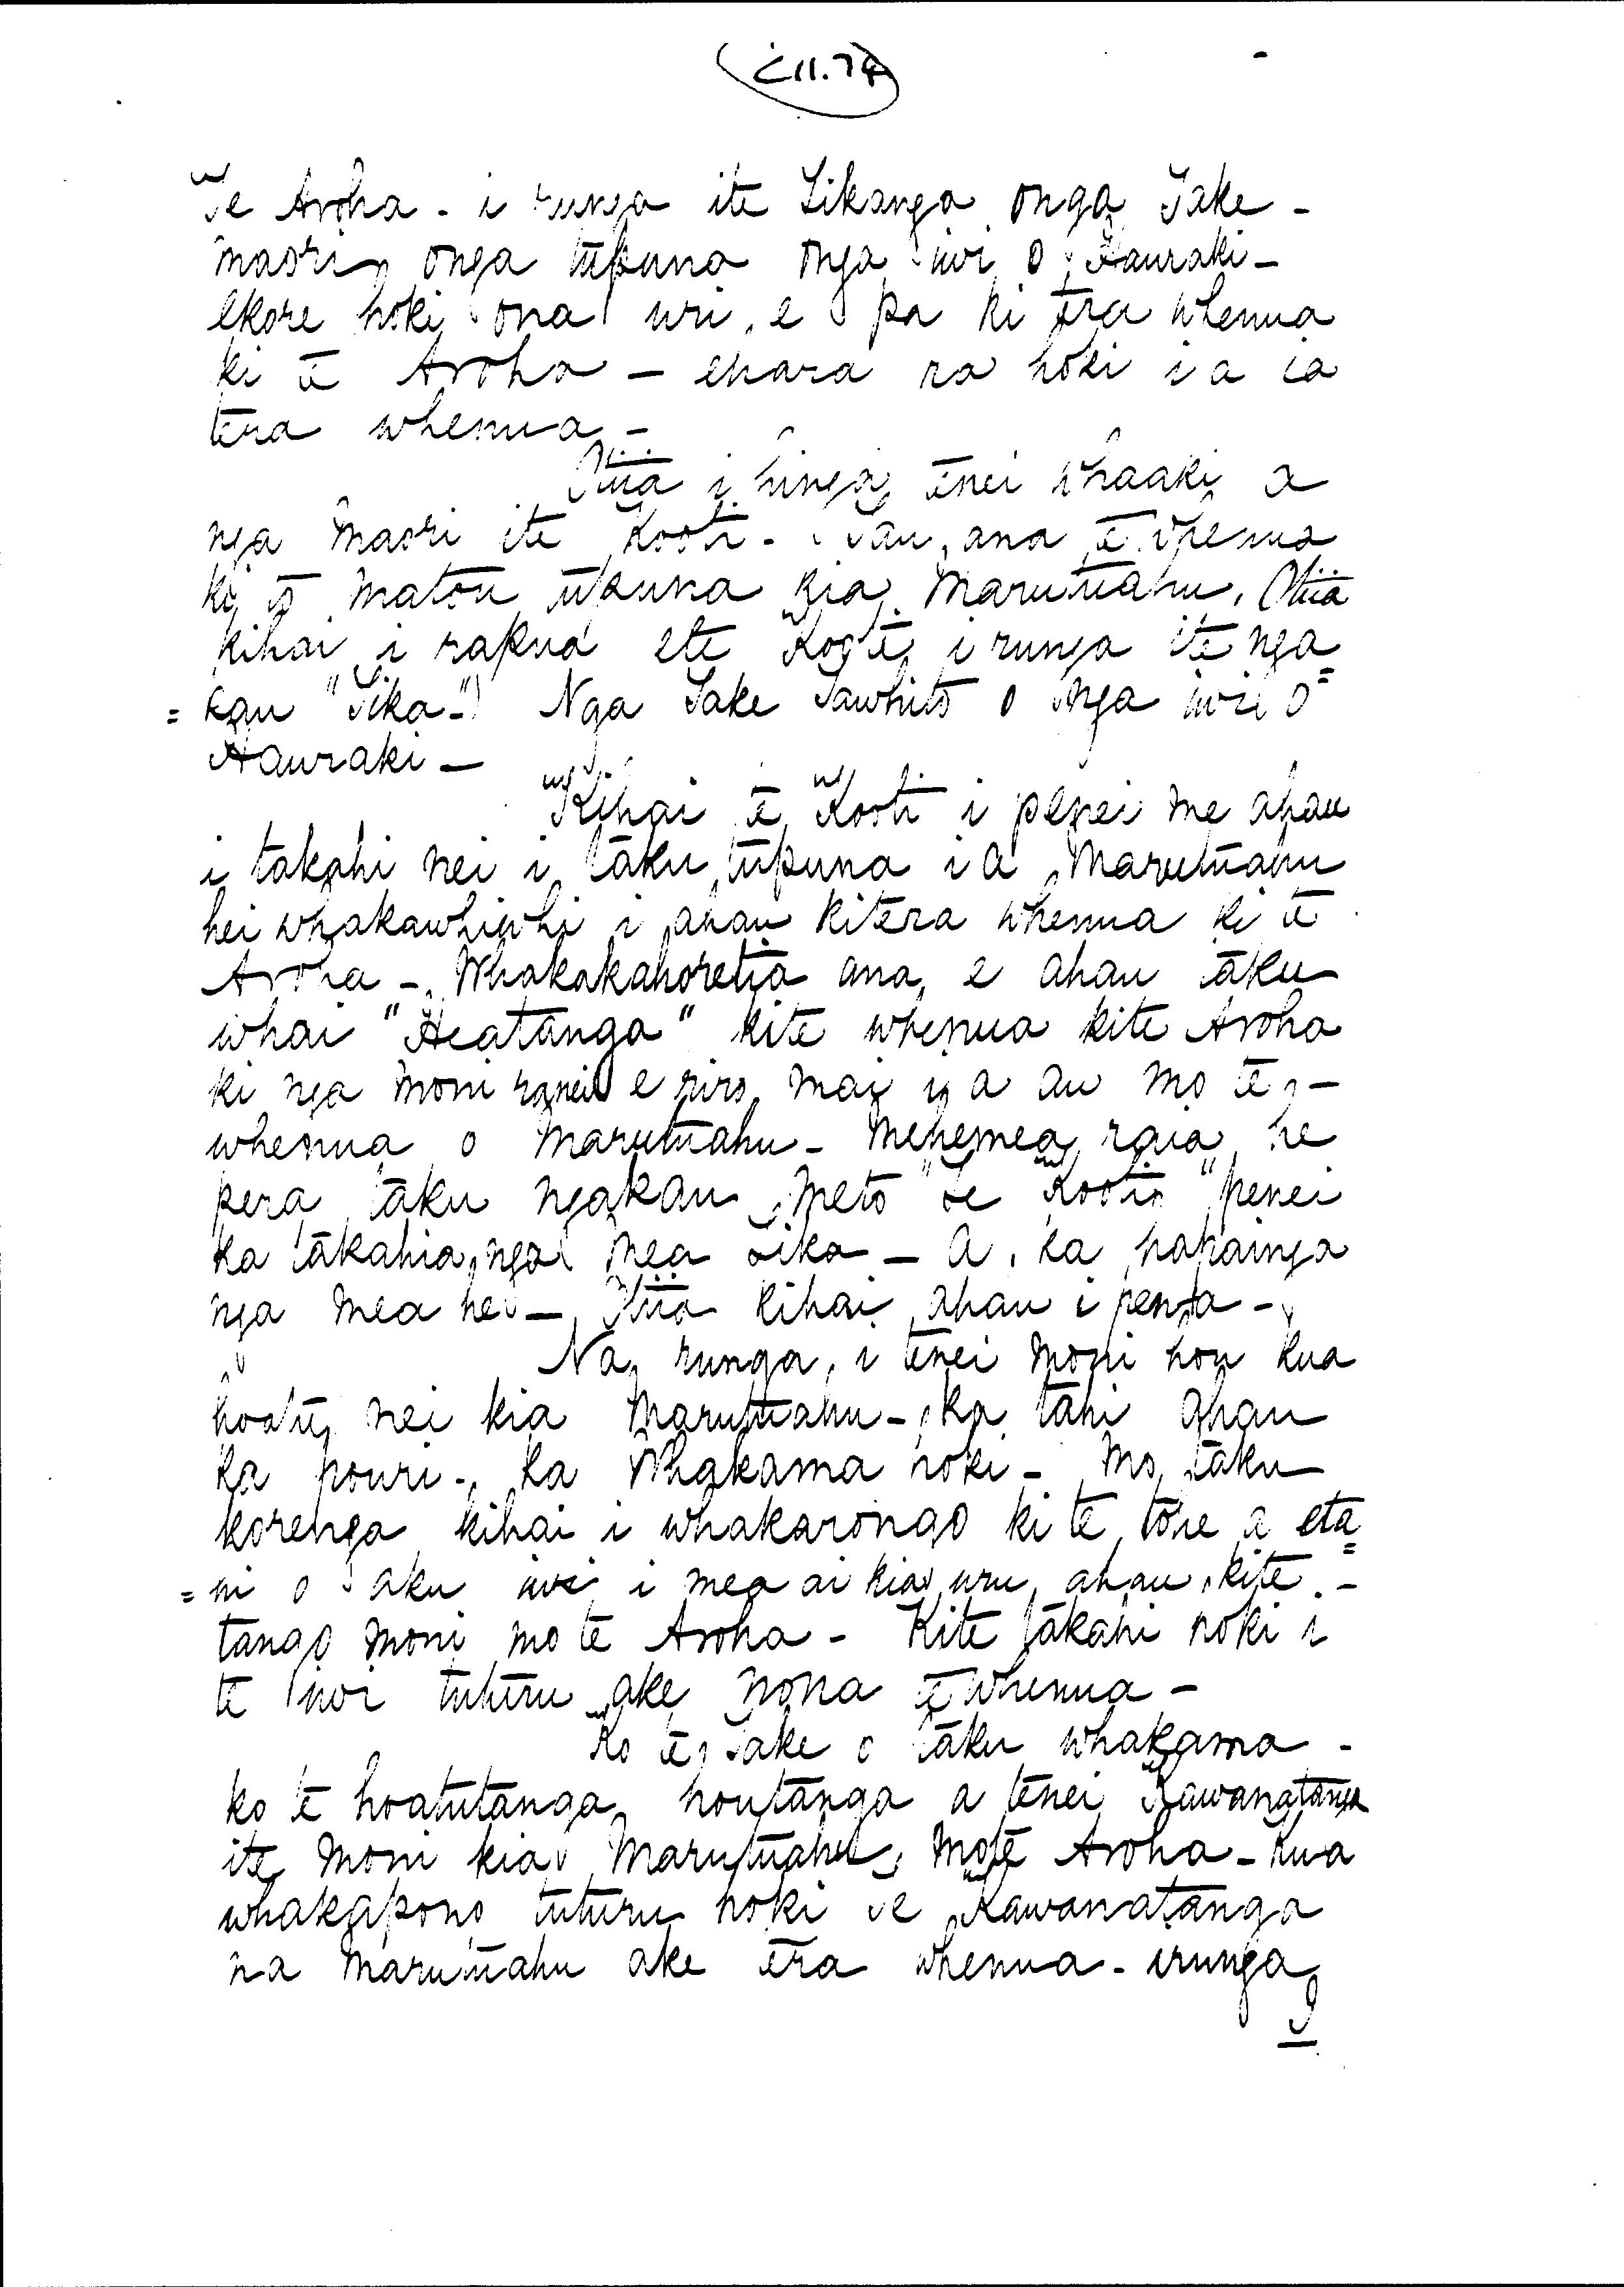 C11.74
Te Aroha - i runga ite Tikanga onga Take -
maori onga tupuna onga iwi o Hauraki -
ekore hoki ona uri, e pa ki era whenua
ki te Aroha - ehara ra hoki i a ia
tera whenua -
Otiia i hinga tenei whaaki a
nga maori ite Kooti - i tau, ana te whenua
ki to matou tupuna kia Marutuahu, Otiia
kihai i rapua ete Kooti, i runga ite nga=
=kau "Tika -" Nga Take Tawhito o nga iwi o
Hauraki -
Kihai te Kooti i penei me ahau
i takahi nei i taku tupuna i a Marutuahu
hei whakawhiwhi i ahau kitera whenua ki te
Aroha - Whakakahoretia ana, e ahau taku
whai "Heatanga" kite whenua kite Aroha
ki nga moni ranei e riro mai i a au mo te -
whenua o Marutuahu - Mehemea raia he
pera taku ngakau meto "Te Kooti" penei
ka takahia nga mea tika - A, ka hapainga
nga mea he - Otiia kihai ahau i penta -
Na runga, i tenei moni hou kua
hoatu nei kia Marutuahu - ka tahi ahau
ka pouri - ka Whakama hoki - Mo taku
korenga kihai i whakarongo ki te tohe a eta=
=hi o aku iwi i mea ai kia uru ahau kite -
tango moni mo te Aroha - Kite takahi hoki i
te iwi tuturu ake nona te whenua -
Ko te take o taku whakama -
ko te hoatutanga houtanga a tenei Kawanatanga
ite moni kia Marutuahu, mote Aroha - kua
whakapono tuturu hoki te Kawanatanga
na Marutuahu ake era whenua - irunga